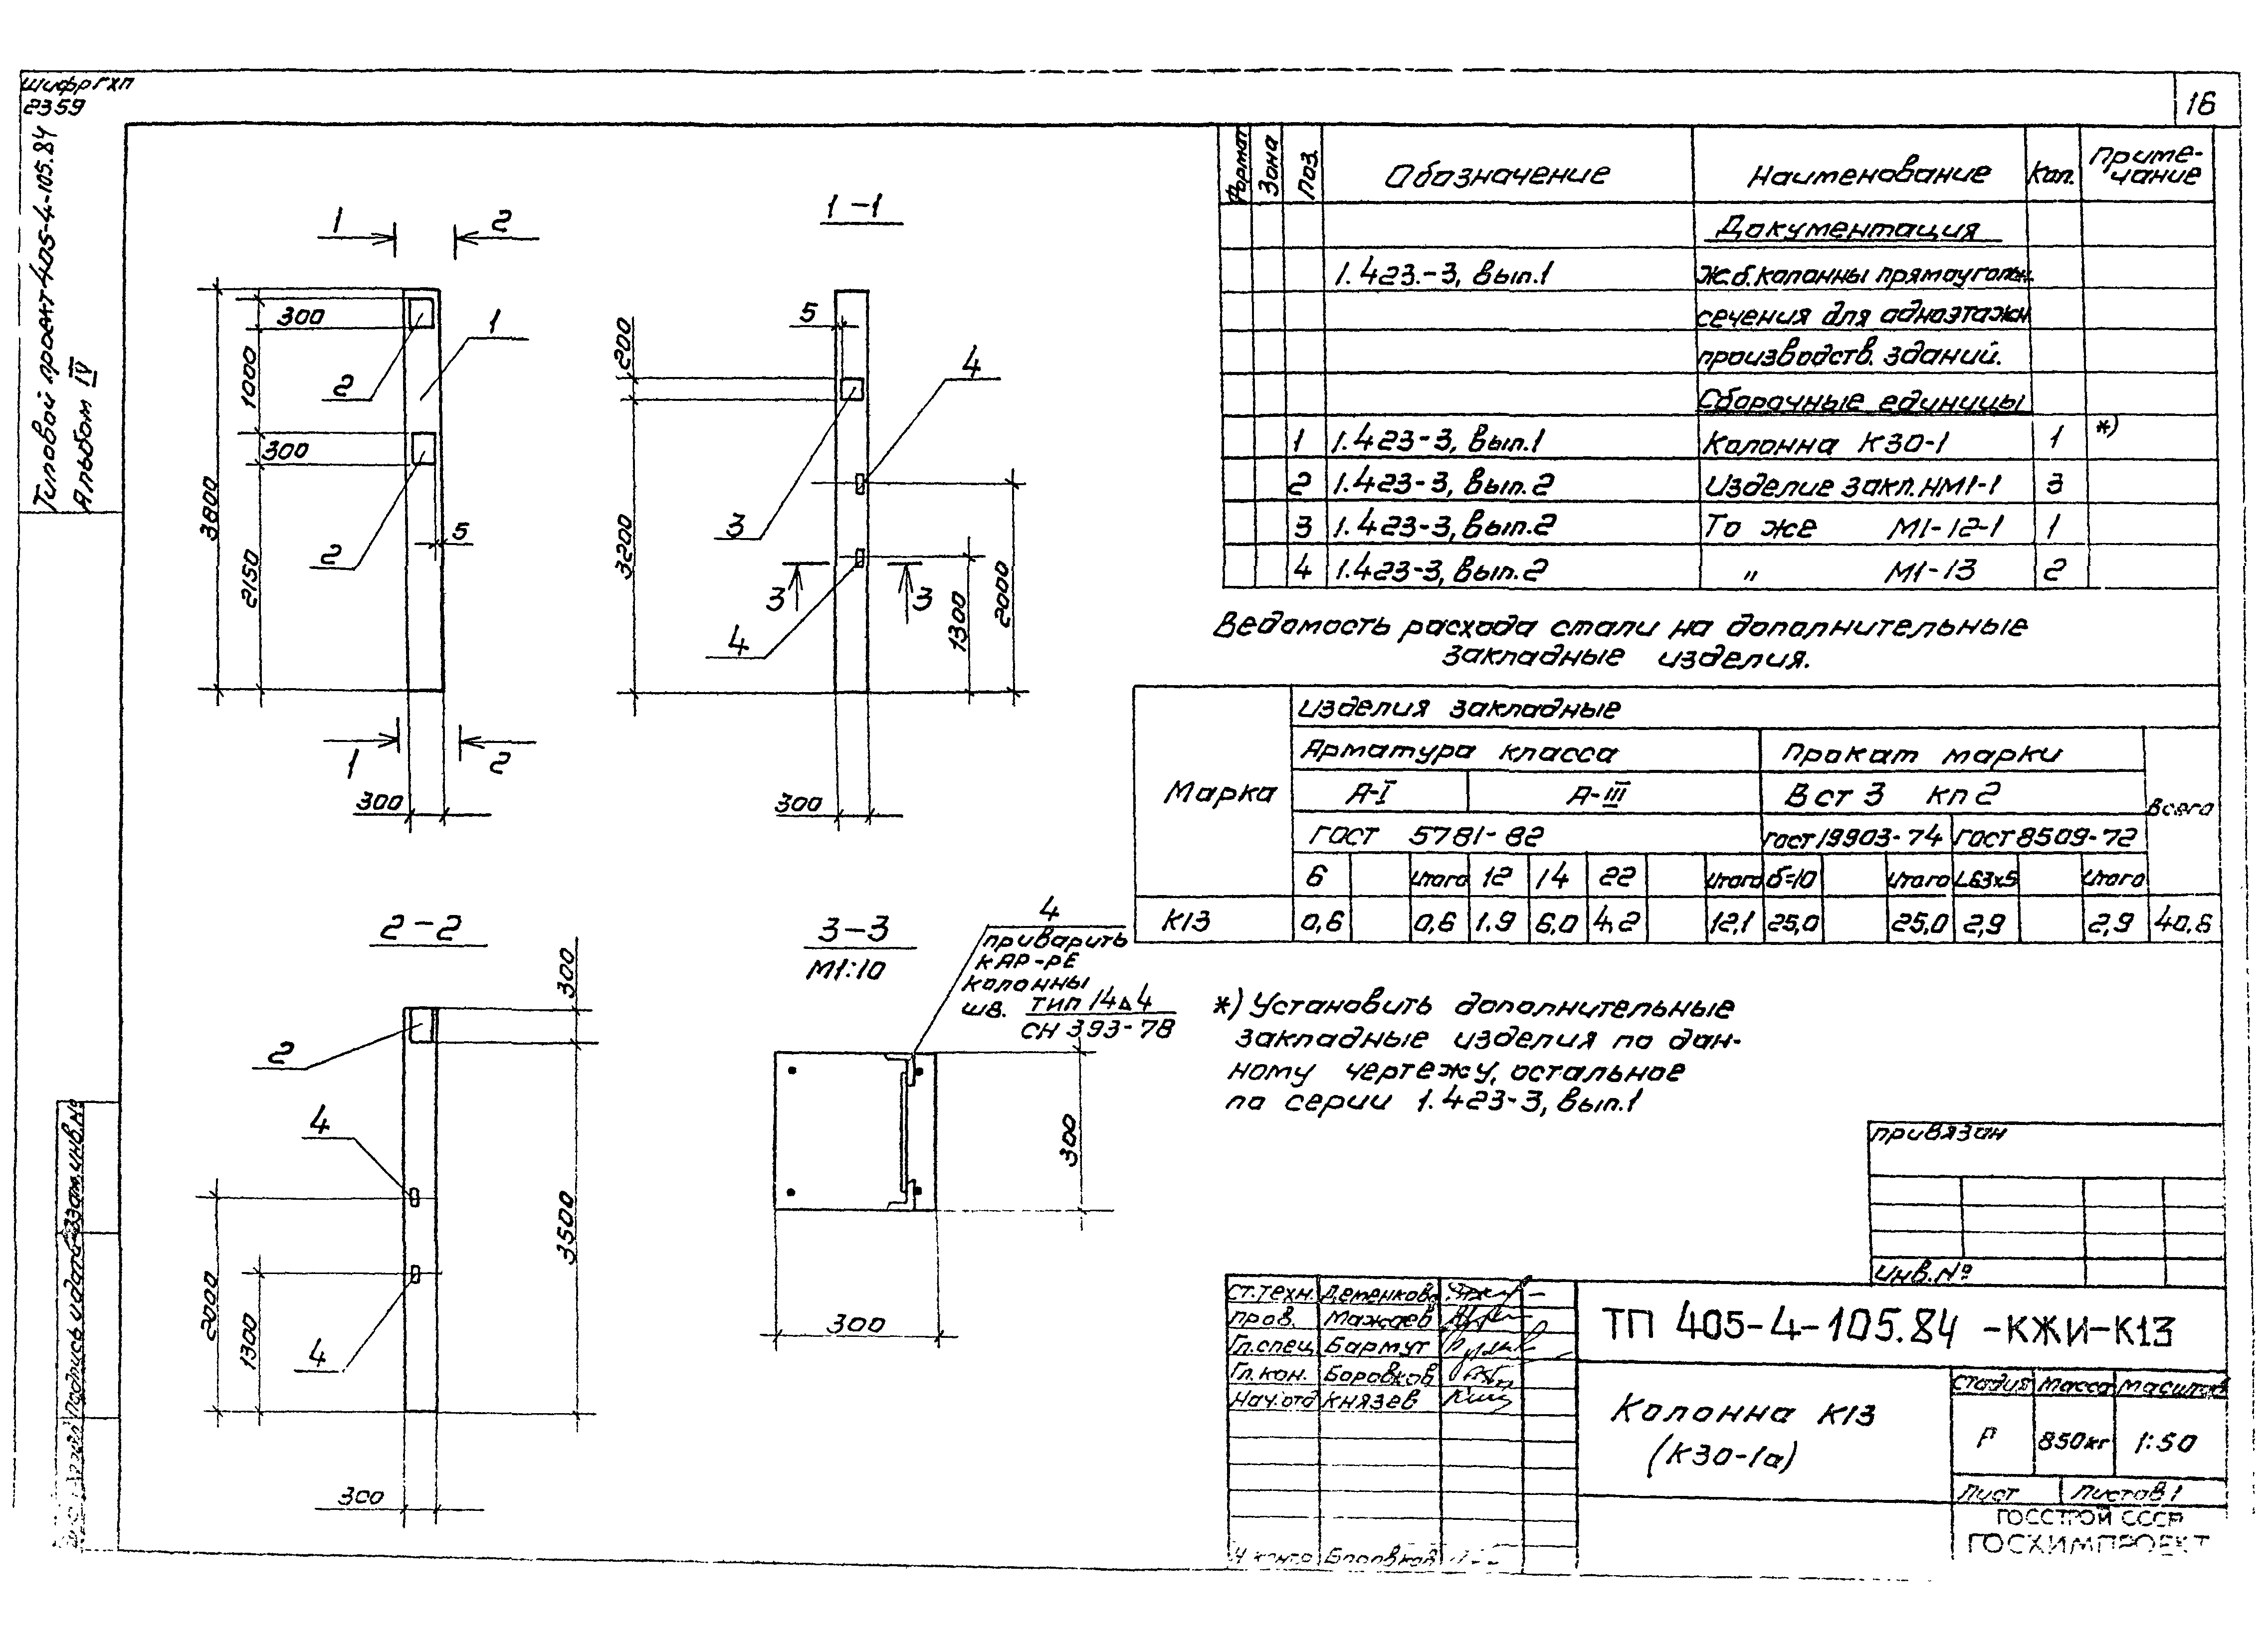 Шифр ГХП
2359
16
Типовой проект 405-4-105.84
Альбом IV
1 2
1-1
300
2
1
1000
300
2
3800
2150
5
1 2
300
5
200
4
3
3200
3 3
4
1300
2000
300
2-2
300
2
4
3500
2000
1300
4
300
3-3
М1:10
4
приварить
к АР-РЕ
колонны
шв. тип 14Δ4
СН 393-78
300
300
Формат Зона Поз. Обозначение Наименование Кол. Приме-
чание
Документация
1.423.-3, вып.1 Ж.б. колонны прямоугольн.
сечения для одноэтажн
производств. зданий.
Сборочные единицы
1 1.423-3, вып.1 Колонна К30-1 1 *)
2 1.423-3, вып.2 Изделие закл. НМ1-1 3
3 1.423-3, вып.2 То же М1-12-1 1
4 1.423-3, вып.2 " М1-13 2
Ведомость расхода стали на дополнительные
закладные изделия.
Марка Изделия закладные
Арматура класса Прокат марки
А-I А-III Вст 3 кп 2 Всего
ГОСТ 5781-82 ГОСТ 19903-74 ГОСТ 8509-72
6 Итого 12 14 22 Итого δ=10 Итого L63х5 Итого
К13 0,6 0,6 1.9 6.0 4,2 12,1 25,0 25,0 2,9 2,9 40.6
*) Установить дополнительные
закладные изделия по дан-
ному чертежу, остальное
по серии 1.423-3, вып.1
Привязан
Инв.№
Ст.техн. Деменкова
Пров. Мажаев
Гл.спец Бармут
Гл.кон. Боровков
Нач.отд Князев
Н.контр Боровков
ТП 405-4-105.84 -КЖИ-К13
Колонна К13
(К30-1а)
Стадия Масса Масштаб
Р 850кг 1:50
Лист Листов 1
ГОССТРОЙ СССР
ГОСХИМПРОЕКТ
Подпись и дата Взам.инв.№